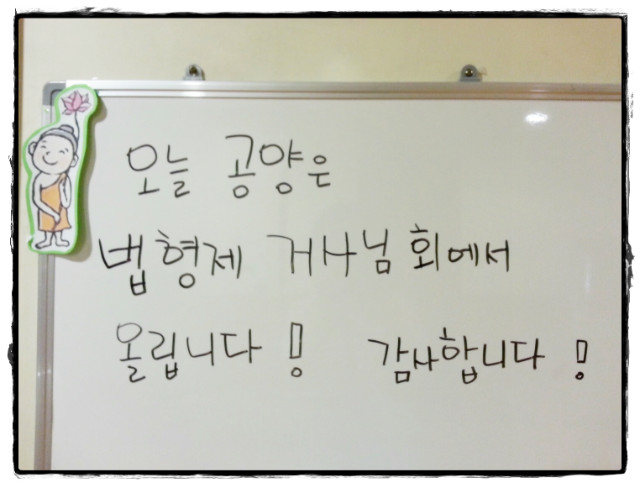 오늘 공양은
법형제 거사님 회에서
올립니다! 감사합니다!